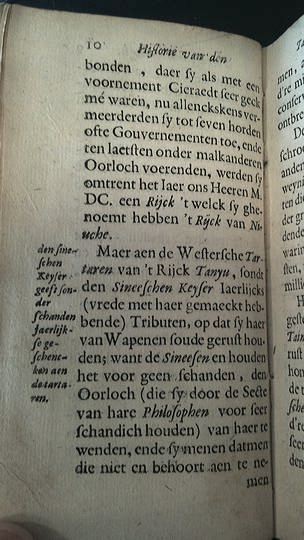 10 Historie van den
bonden , daer sy als met een
voornement Cieraedt seer geck
mé waren, nu allenckskens ver-
meerderden sy tot seven horden
ofte Gouvernementen toe, ende
ten laetsten onder malkanderen
Oorloch voerenden, werden sy
omtrent het Iaer ons Heeren M.
DC. een Rijck 't welck sy ghe-
noemt hebben 't Rijck van Niu-
uche.
Maer aen de Westersche Tar-
taren van 't Rijck Tanyu, sondt
den Sineeschen Keyser Iaerlijcks
(vrede met haer gemaeckt heb-
bende) Tributen, op dat sy haer
van Wapenen soude gerust hou-
den; want de Sineesen en houden
het voor geen schanden , den
Oorloch (die sy door de Secte
van hare Philosophen voor seer
schandich houden) van haer te
wenden, ende sy menen datmen
die niet en behoort aen te ne-
men
den sinee-
schen
Keyser
geeft son-
der
schanden
Jaerlijk-
se ge-
schenc-
ken aen
de tarta-
ren.